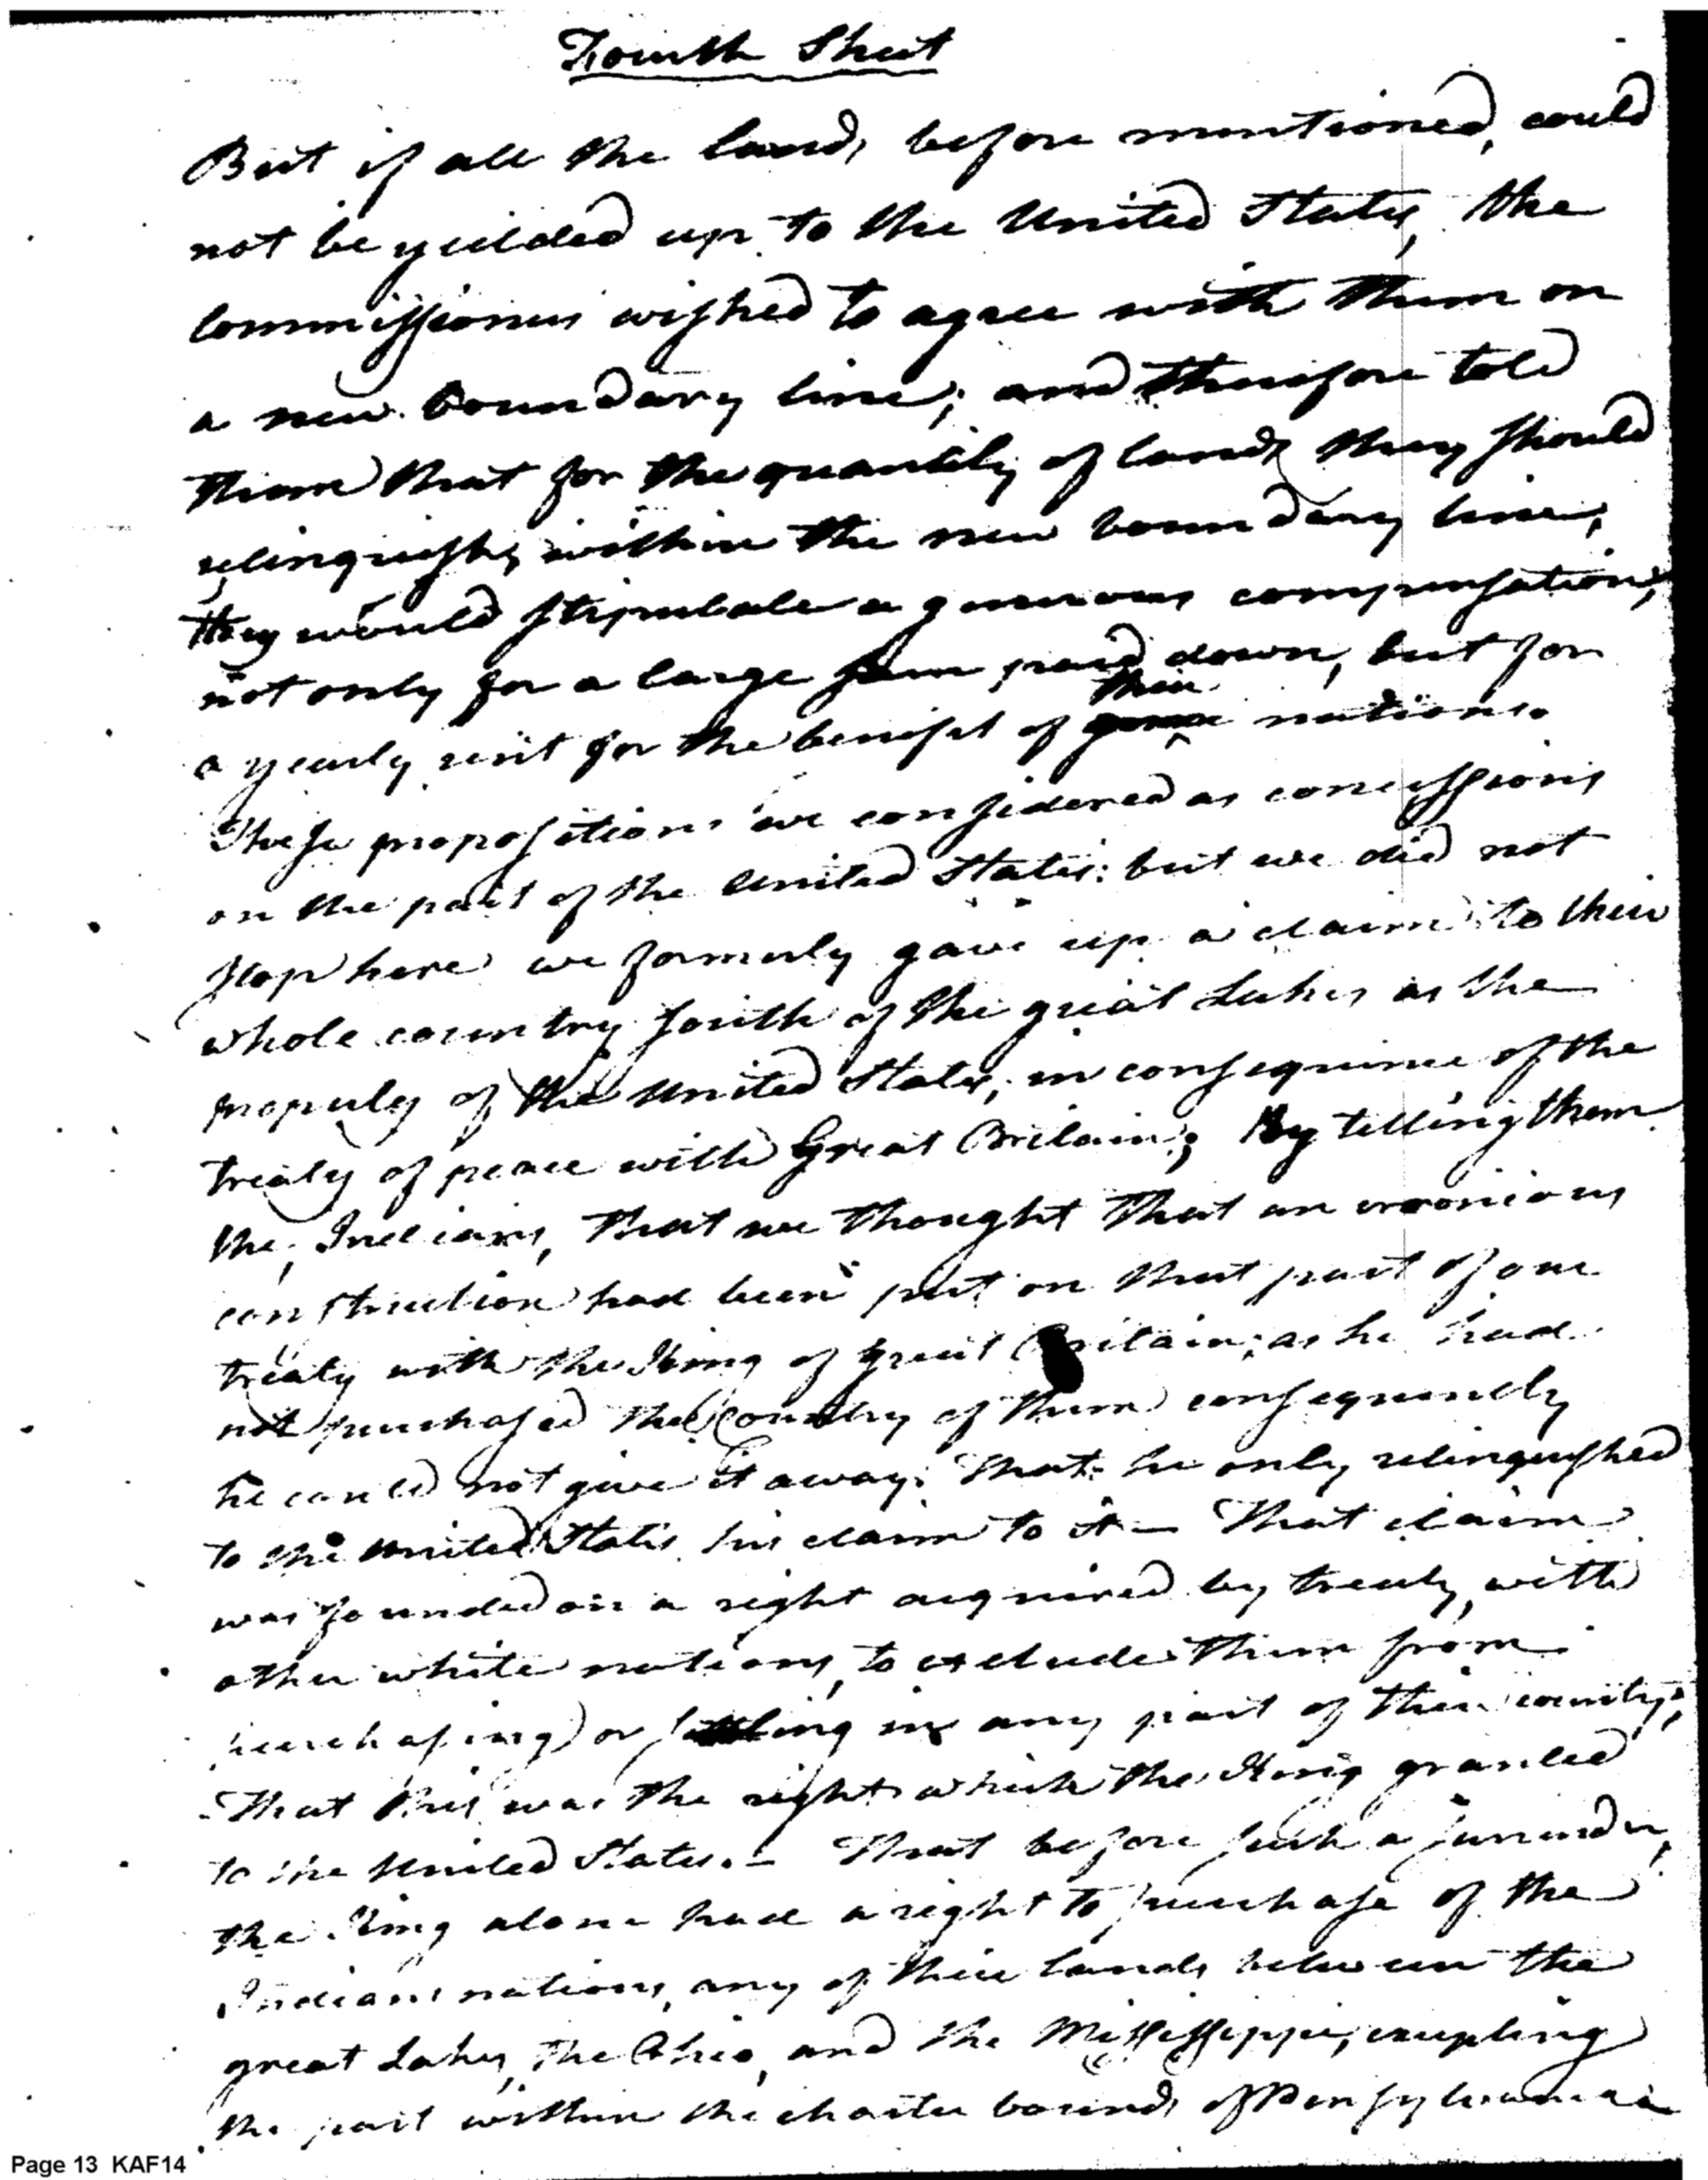 Fourth Sheet
But if all the lands before mentioned, could
not be yielded up to the United States, the
Commissioners wished to agree with them on
a new boundary line; and therefore told
them that for the quantity of lands they should
relinquish, within the new boundary line,
they would stipulate a generous compensation,
not only for a large sum paid down, but for
a yearly rent for the benefit of their nations.
These propositions we considered as concessions
on the part of the United States: but we did not
stop here we formerly gave up a claim to their
whole country south of the great Lakes as the
property of the United States, in consequence of the
treaty of peace with Great Britain; By telling them
the Indians, that we thought that an erronious
construction had been put on that part of our
treaty with the King of great Britain; as he had
not purchased the Country of them consequently
he could not give it away. That he only relinquished
to the United States his claim to it — That claim
was founded on a right acquired by treaty, with
other white nations, to exclude them from
purchasing or settling in any part of their country;
That this was the right which the King granted
to the United States. — That before such a surrender,
the King alone had a right to purchase of the
Indians nations, any of their lands between the
great Lakes, the Ohio, and the Mississippi, excepting
the part within the charter bounds of Pensylvania
Page 13 KAF14